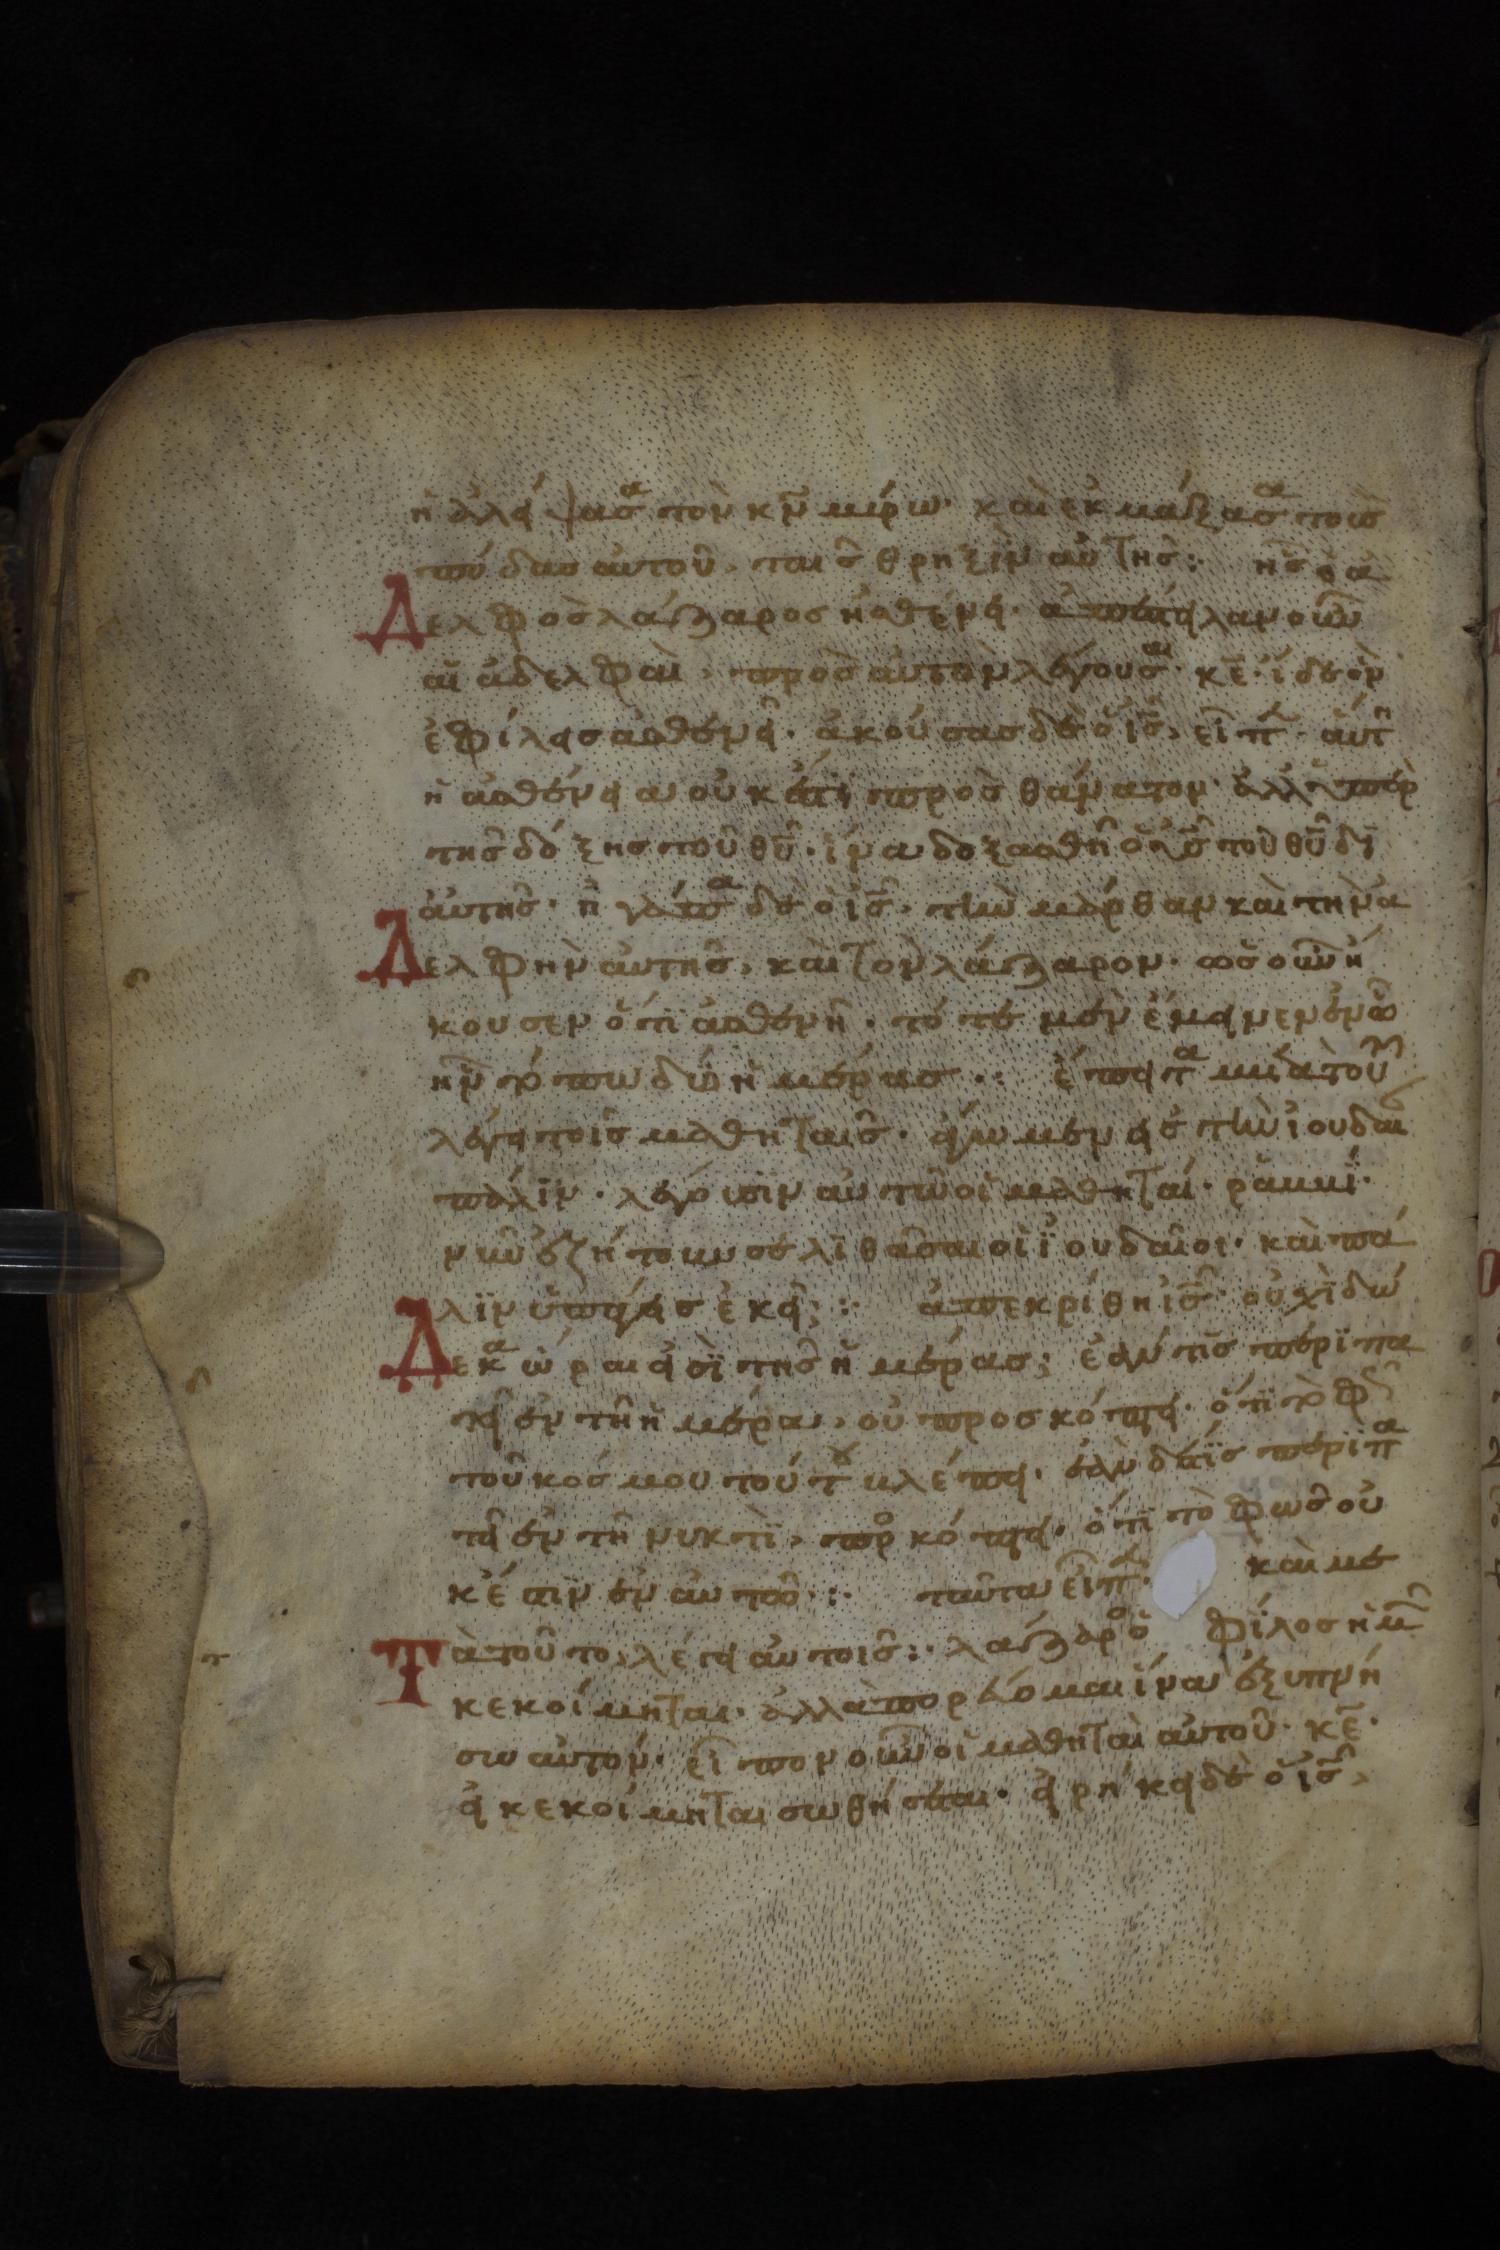 ἡ ἀλείψασα τὸν κν̄ μύρω· καὶ ἐκμάξασα τοὺς
πόδας αὐτοῦ, ταῖς θρηξὶν αὐτῆς:· ἧς ὁ ἀ
Δελφὸς λάζαρος ἠσθένει· ἀπέστειλαν οὖν
αἱ ἀδελφαὶ, πρὸς αὐτὸν λέγουσαι· κε̄· ἴδε ὃν
ἐφίλεις ἀσθενεῖ· ἀκούσας δὲ ὁ ις̄, εἶπεν· αὕτη
ἡ ἀσθένεια οὐκ ἔστι πρὸς θάνατον· ἀλλ' ὑπὲρ
τῆς δόξης τοῦ θῡ· ἵνα δοξασθῆ ὁ υς̄ τοῦ θῡ δι'
αὐτῆς· ἠγάπα δὲ ὁ ις̄· τὴν μάρθαν καὶ τὴν ἀ
Δελφὴν αὐτῆς, καὶ τὸν λάζαρον· ὡς οὖν ἤ
κουσεν ὅτι ἀσθενῆ· τότε μὲν ἔμεινεν ἐν ὧ
ἦν τόπω δύο ἡμέρας·: ἔπειτα μετὰ τοῦτο
λέγει τοῖς μαθηταῖς· ἄγωμεν εἰς τὴν ἰουδαίαν
πάλιν· λέγουσιν αὐτῶ οἱ μαθηταί· ραββί·
νῦν ἐζήτουν σε λιθᾶσαι οἱ ἰουδαῖοι· καὶ πά
λιν ὑπάγεις ἐκεῖ; :· ἀπεκρίθη ις̄· οὐχὶ δώ
Δεκα ὧραι εἰσὶ τῆς ἡμέρας; ἐάν τις περιπα
τῆ ἐν τῆ ἡμέρα, οὐ προσκόπτει· ὅτι τὸ φῶς
τοῦ κόσμου τούτου βλέπει· ἐὰν δέ τις περιπα
τῆ ἐν τῆ νυκτὶ, προσκόπτει· ὅτι τὸ φῶς οὐ
κ ἔστιν ἐν αὐτῶ·:· ταῦτα εἶπεν· καὶ με
Τὰ τοῦτο, λέγει αὐτοῖς:· λάζαρος ὁ φίλος ἡμῶν
κεκοίμηται· ἀλλὰ πορεύομαι ἵνα ἐξυπνή
σω αὐτόν· εἶπον οὖν οἱ μαθηταὶ αὐτοῦ· κε̄·
εἰ κεκοίμηται σωθήσεται· εἰρήκει δὲ ὁ ις̄,